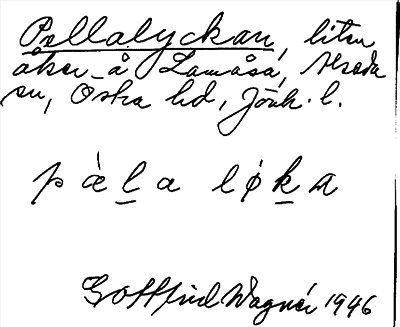 Pellalyckan, liten
åker å Lamåsa, Vireda
sn, Östra hd, Jönk. l.
pàla løka
Gottfrid Wagnér 1946